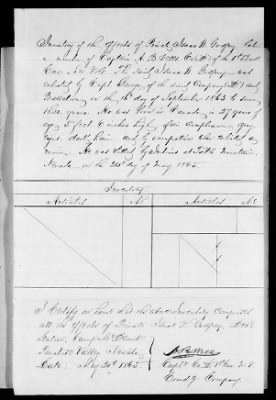 Inventory of the effects of Private Isaac W. Godfrey late
a member of Captain A. B. Wells Co. D of the 1st Batt
Cav. Nev. Vols. The said Isaac W. Godfrey was
enlisted by Capt. of the said Company D 1st
Battalion on the 16 day of September 1863 to serve
three years. He was born in Canada 27 years of
age 5 feet 6 inches high complexion gray
eyes dark hair and by occupation when enlisted
He was killed by Indians at
Nevada on the 20th day of May 1865.
Inventory
Articles No. Articles No.
I Certify on honor that the above Inventory Comprises
all the effects of Private Isaac W. Godfrey Decd
Station, Camp
Valley, Nevada
Date May 30th 1865.
A. B. Wells
Capt. Co. D 1st Cav. N. V.
Comdg Company.